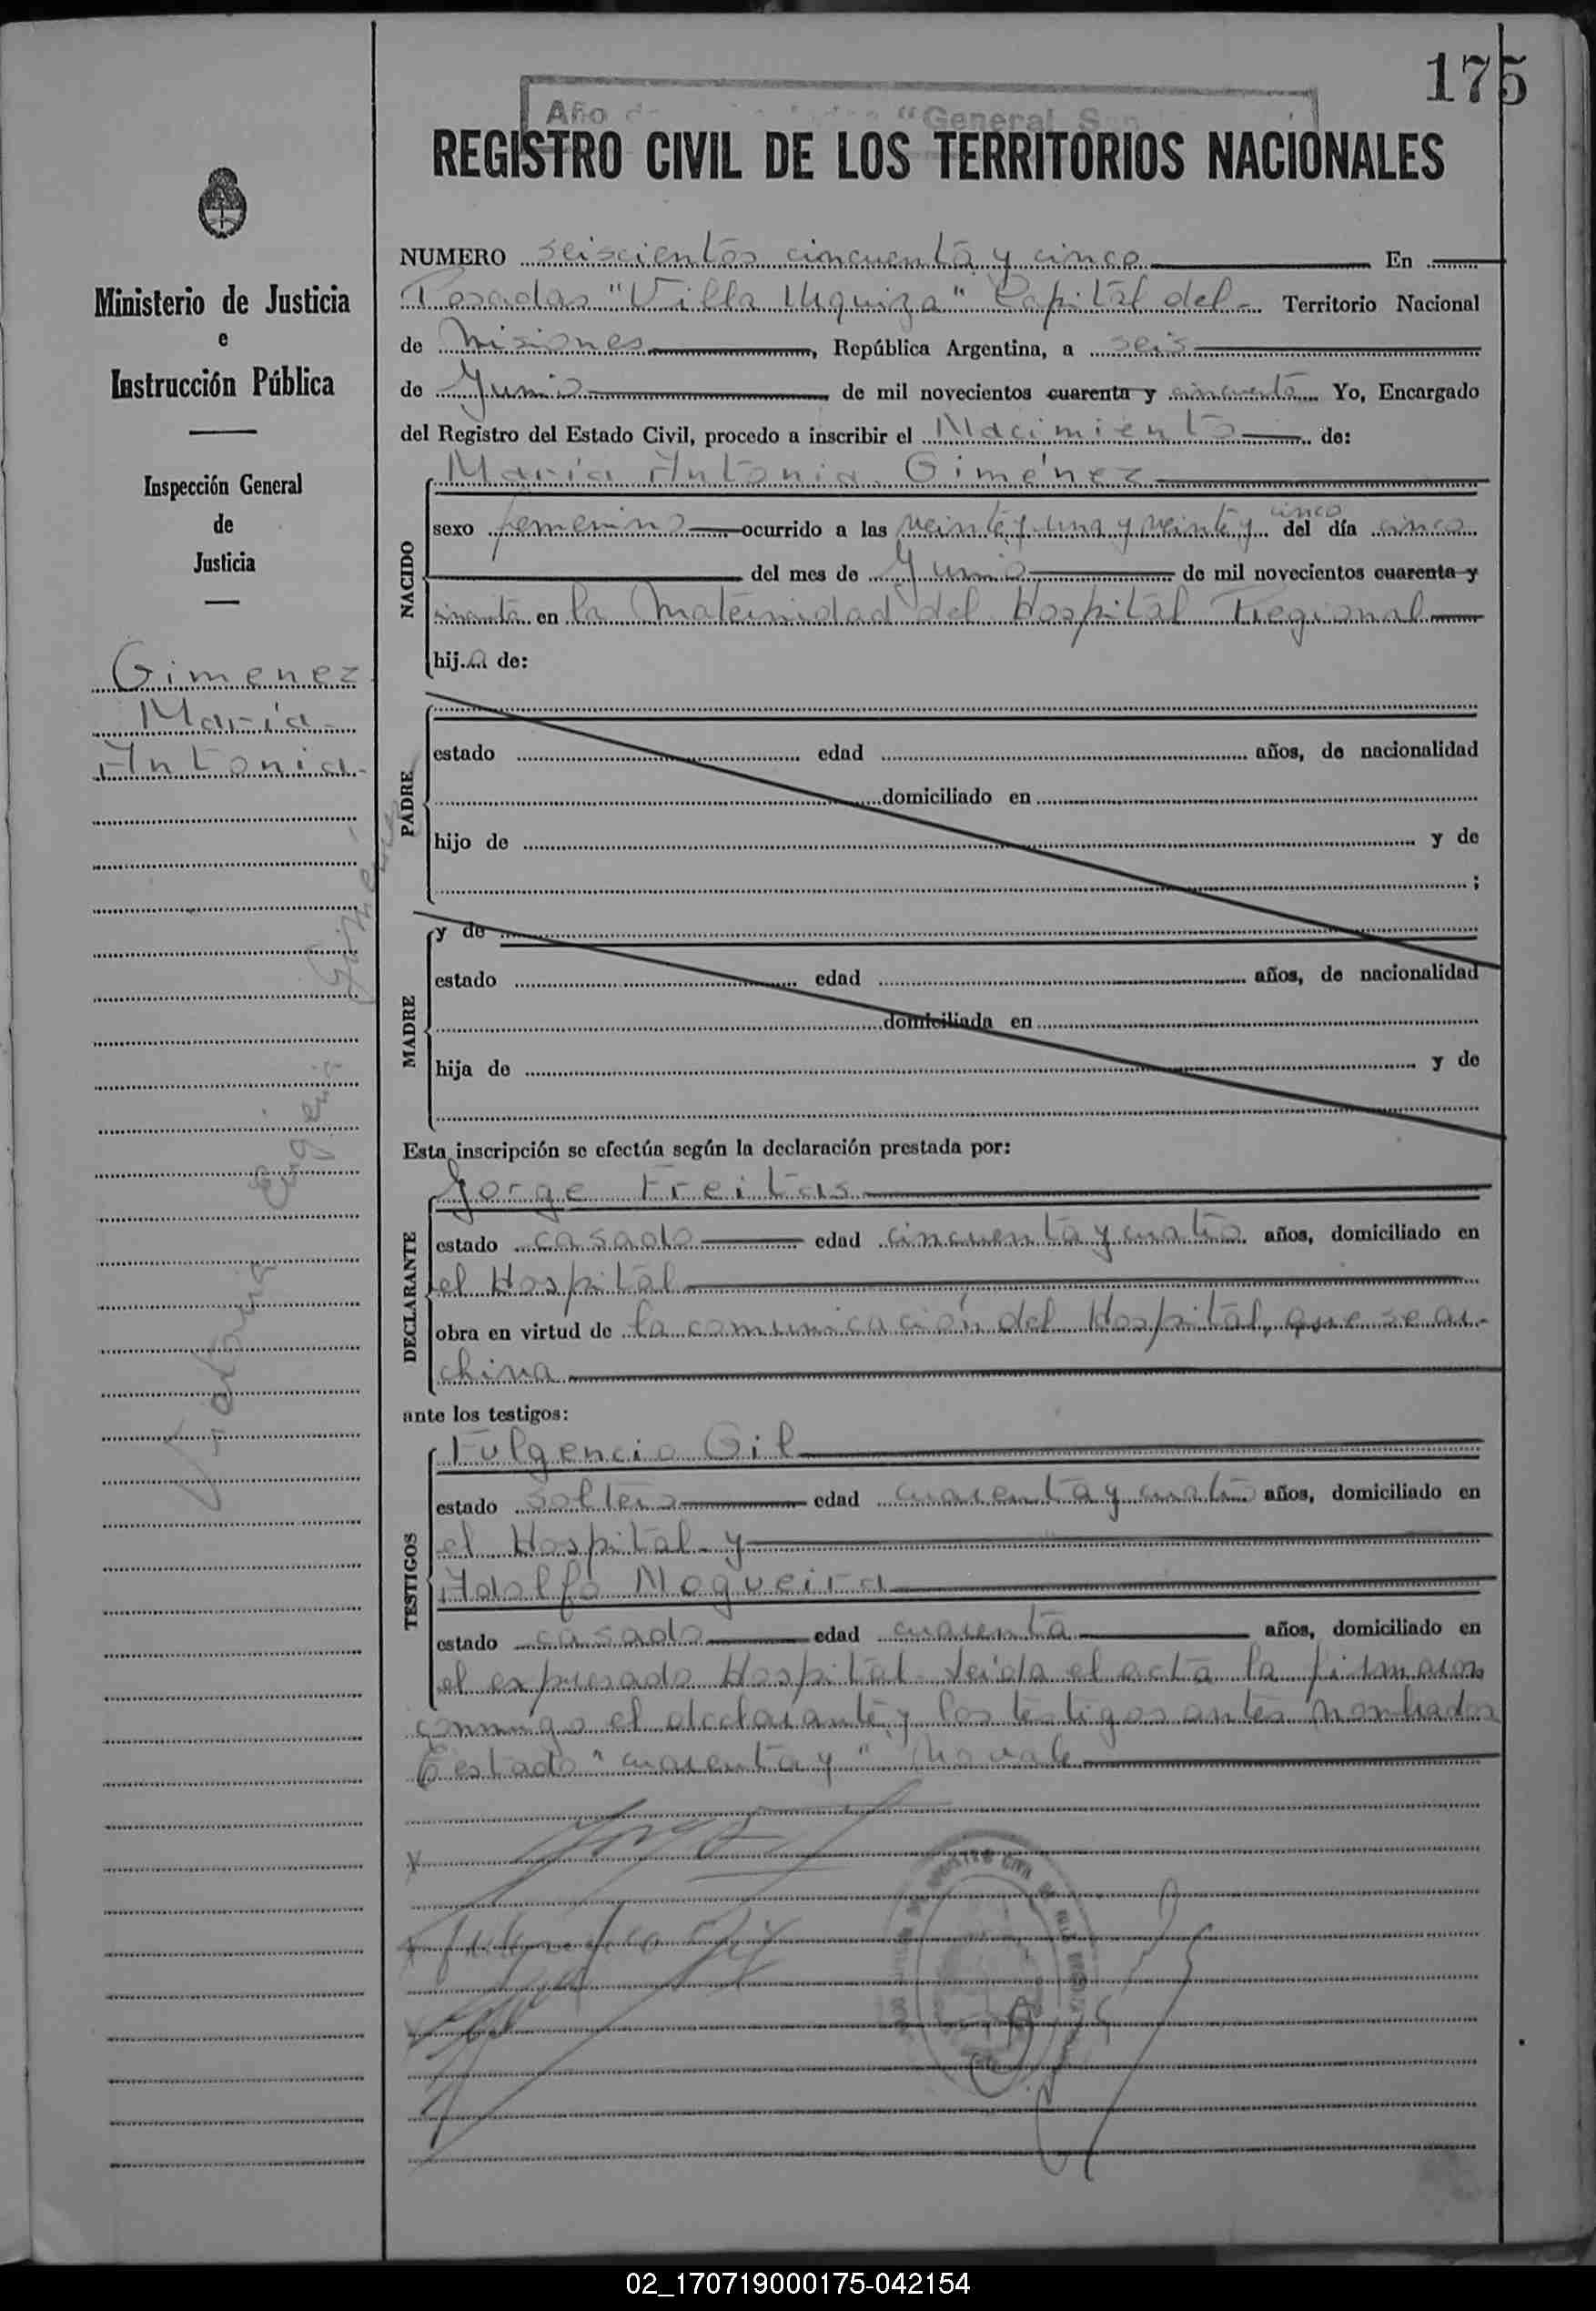 175
Año "General
REGISTRO CIVIL DE LOS TERRITORIOS NACIONALES
Ministerio de Justicia
e
Instrucción Pública
Inspección General
de
Justicia
Gimenez
María
Antonia
NUMERO seiscientos cincuenta y cinco En
Posadas "Villa Urquiza" Capital del Territorio Nacional
de Misiones, República Argentina, a seis
de Junio de mil novecientos cuarenta y cincuenta Yo, Encargado
del Registro del Estado Civil, procedo a inscribir el Nacimiento de:
María Antonia Giménez
NACIDO
sexo femenino ocurrido a las veinte y una y veinte y cinco del día cinco
del mes de Junio de mil novecientos cuarenta y
en la Maternidad del Hospital Regional
hija de:
PADRE
estado edad años, de nacionalidad
domiciliado en
hijo de y de
;
MADRE
y de
estado edad años, de nacionalidad
domiciliada en
hija de y de
Esta inscripción se efectúa según la declaración prestada por:
DECLARANTE
Jorge Freitas
estado casado edad cincuenta y cuatro años, domiciliado en
el Hospital
obra en virtud de la comunicación del Hospital, que se ar-
chiva
ante los testigos:
TESTIGOS
Fulgencio Gil
estado soltero edad cuarenta y cuatro años, domiciliado en
el Hospital y
Adolfo Nogueira
estado casado edad cuarenta años, domiciliado en
el expresado Hospital. Leída el acta la firmaron
conmigo el declarante y los testigos antes nombrados
Testado "cuarenta y" No vale
02_170719000175-042154